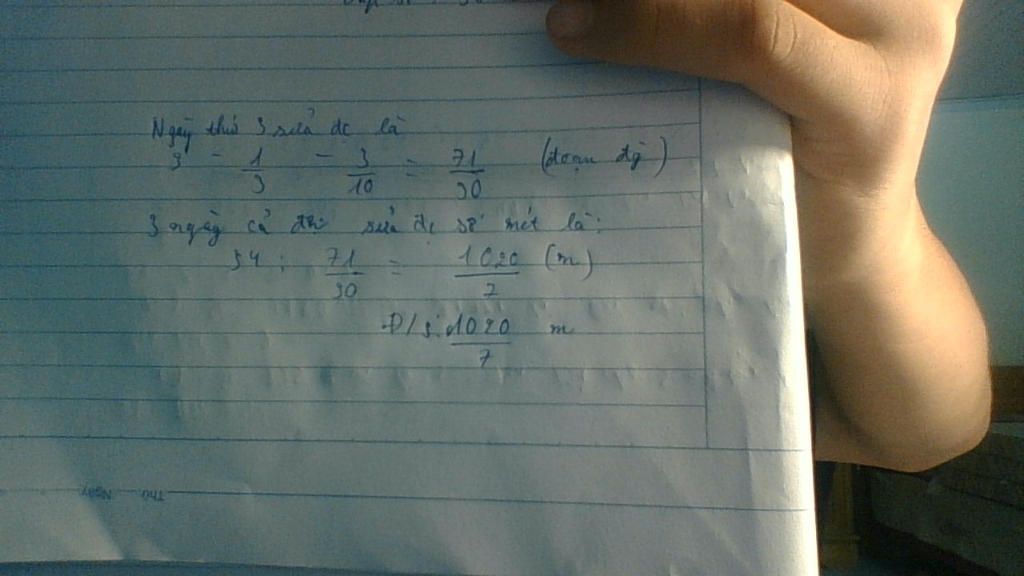 Ngày thứ 3 sửa đc là
3 - 1/3 - 3/10 = 71/30 (đoạn đg)
3 ngày cả đội sửa đc số mét là:
34 : 71/30 = 1020/7 (m)
Đ/s: 1020/7 m
THỨ NGÀY